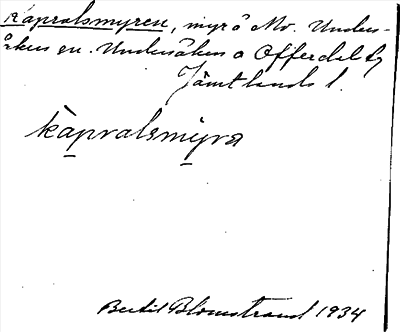 Kapralsmyren, myr å Mo. Unders-
åkers sn. Undersåkers o Offerdal tg
Jämtlands l.
kàpralsmy̠ra
Bertil Blomstrand 1934